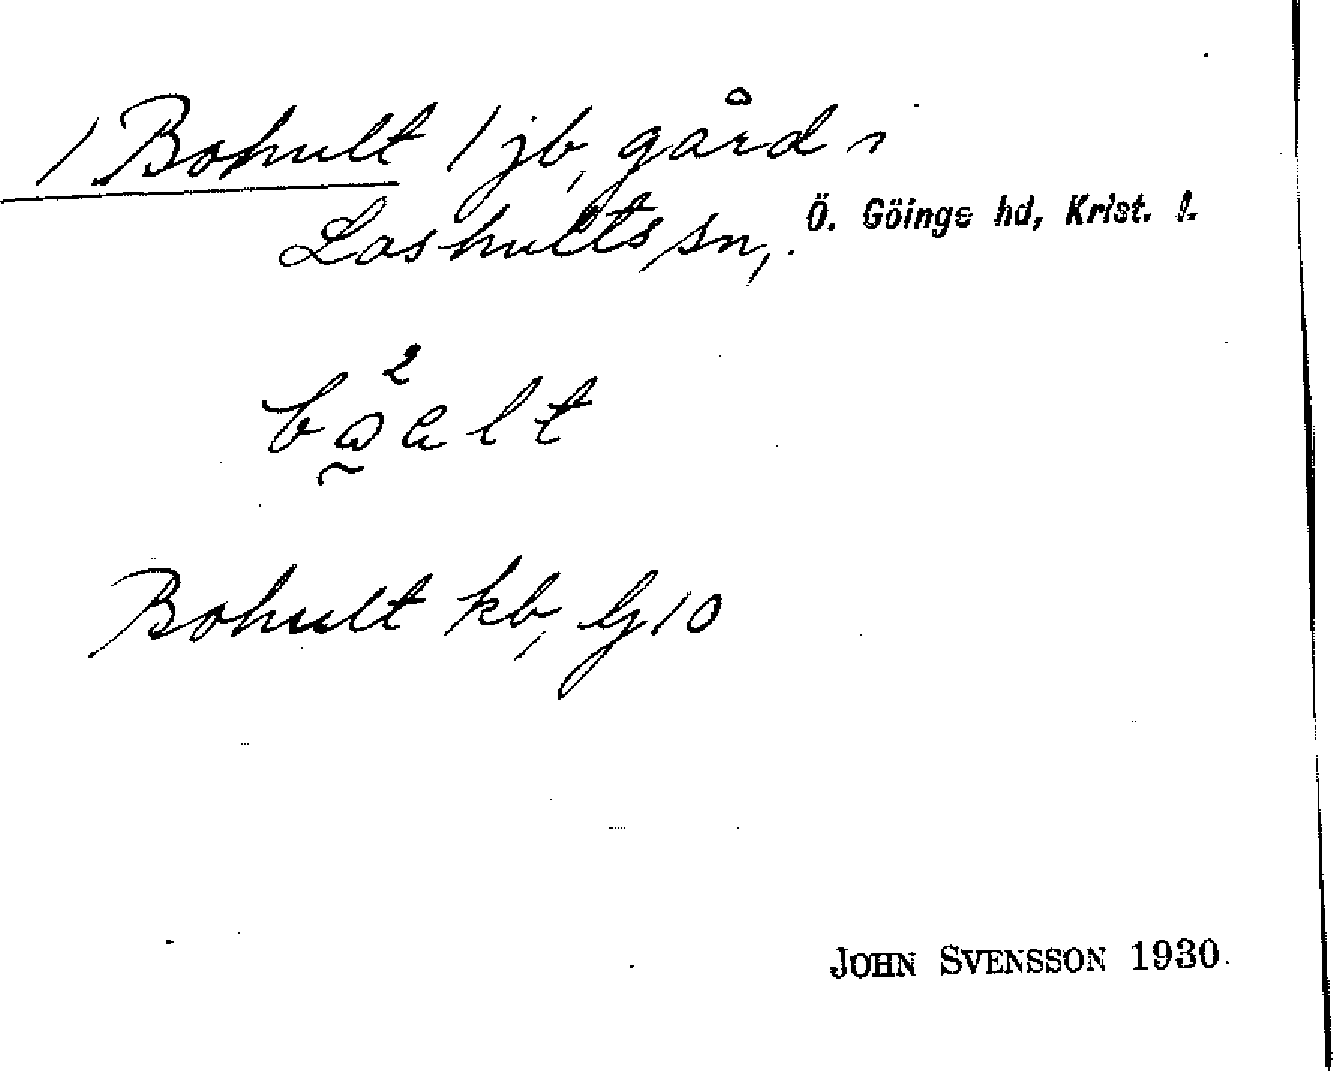 / Bohult / jb, gård i
Loshults sn, Ö. Göinge hd, Krist. l.
Bohult kb, G10
JOHN SVENSSON 1930.